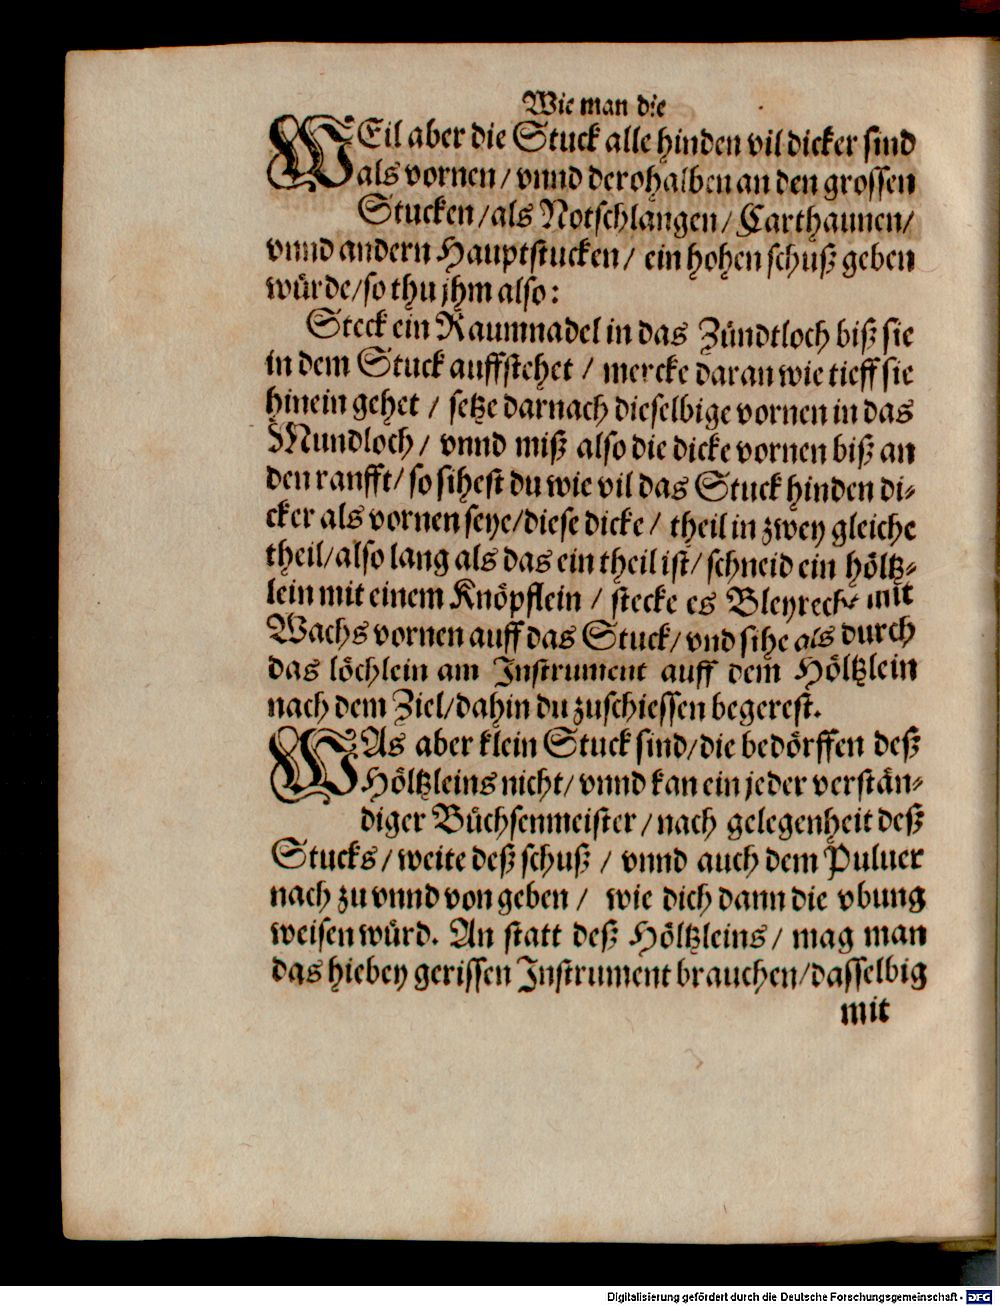 Wie man die
WEil aber die Stuck alle hinden vil dicker sind
als vornen / vnnd derohalben an den grossen
Stucken / als Notschlangen / Carthaunen /
vnnd andern Hauptstucken / ein hohen schuß geben
würde / so thu jhm also:
Steck ein Raumnadel in das Zündtloch biß sie
in dem Stuck auffstehet / mercke daran wie tieff sie
hinein gehet / setze darnach dieselbige vornen in das
Mundloch / vnnd miß also die dicke vornen biß an
den ranfft / so sihest du wie vil das Stuck hinden di-
cker als vornen seye / diese dicke / theil in zwey gleiche
theil / also lang als das ein theil ist / schneid ein höltz-
lein mit einem Knöpflein / stecke es Bleyrecht mit
Wachs vornen auff das Stuck / vnd sihe als durch
das löchlein am Instrument auff dem Höltzlein
nach dem Ziel / dahin du zuschiessen begerest.
WAs aber klein Stuck sind / die bedörffen deß
Höltzleins nicht / vnnd kan ein jeder verstän-
diger Büchsenmeister / nach gelegenheit deß
Stucks / weite deß schuß / vnnd auch dem Puluer
nach zu vnnd von geben / wie dich dann die vbung
weisen würd. An statt deß Höltzleins / mag man
das hiebey gerissen Instrument brauchen / dasselbig
mit
Digitalisierung gefördert durch die Deutsche Forschungsgemeinschaft - DFG